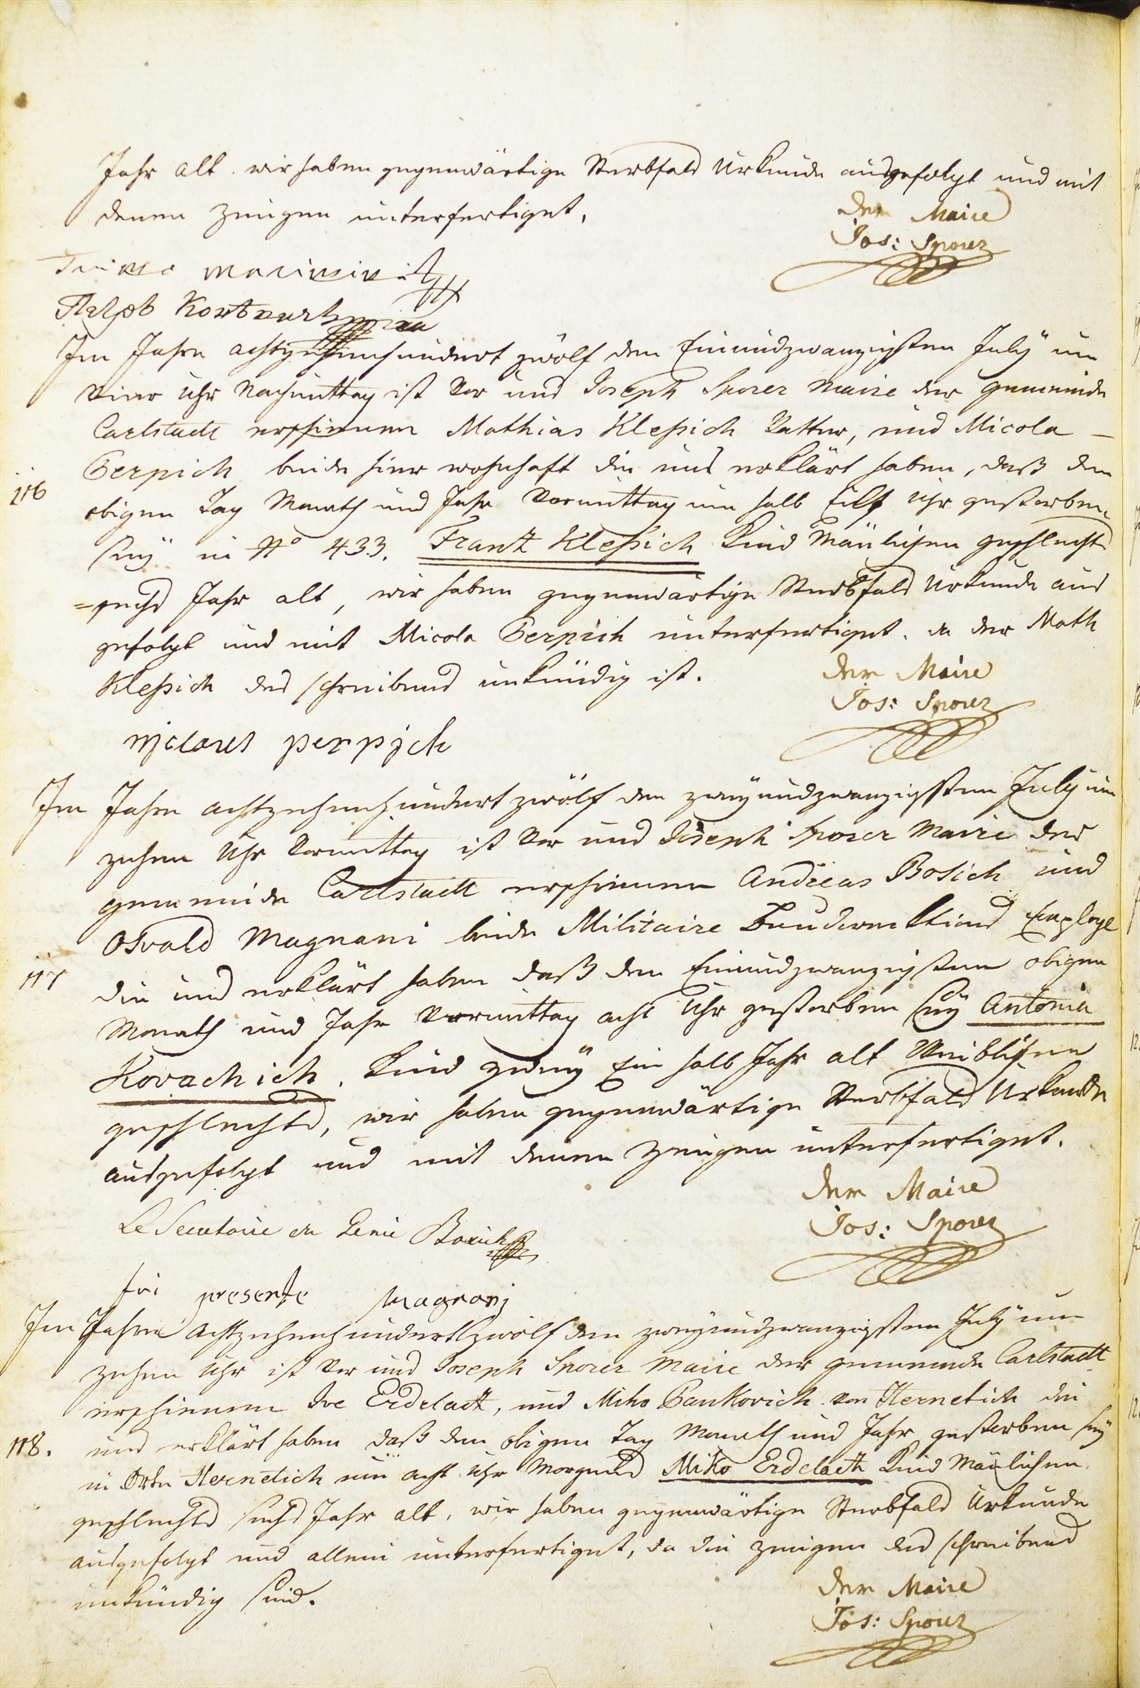 Jahr alt. wir haben gegenwärtige Sterbfals Urkunde ausgefolgt und mit
denen Zeugen unterfertiget.
Der Maire
Jos: Sporer
Im Jahre achtzehenhundert zwölf den Einundzwanzigsten July um
vier Uhr Nachmittag ist vor uns Joseph Sporer Maire der gemeinde
Carlstadt erschienen Mathias Kleßich Vatter, und Micola
Perpich beide hier wohnhaft die uns erklärt haben, daß den
116
obigen Tag Monath und Jahr Vormittag um halb Eilf Uhr gestorben
seyĕ in No 433. Frantz Kleßich Kind Mänlichen geschlechts
sechs Jahr alt, wir haben gegenwärtige Sterbfals Urkunde aus
gefolgt und mit Micola Perpich unterfertiget. da der Math
Kleßich des schreibens unkündig ist.
Der Maire
Jos: Sporer
perpich
Im Jahre achtzehenhundert zwölf den zweyundzwanzigsten July um
zehen Uhr Vormittag ist vor uns Joseph Sporer Maire der
gemeinde Carlstadt erschienen Andreas Bosich und
Osvald Magnani beide Militaire Baudirecktions Employe
117
die uns erklärt haben daß den Einundzwanzigsten obigen
Monath und Jahr Vormittag acht Uhr gestorben sey Antonia
Kovachich. Kind zwey Ein halb Jahr alt Weiblichen
geschlechts, wir haben gegenwärtige Sterbfals Urkunde
ausgefolgt und mit denen Zeugen unterfertiget.
Der Maire
Jos: Sporer
Le Secretaire du Genie Bosich
fui presente Magnani
Im Jahre Achtzehenhundert zwölf den zweyundzwanzigsten July um
zehen Uhr ist vor uns Joseph Sporer Maire der gemeinde Carlstadt
erschienen Ive Erdelach, und Miko Pankovich von Hernetich die
118.
uns erklärt haben daß den obigen Tag Monath und Jahr gestorben sey
in Orte Hernetich um acht Uhr Morgens Miko Erdelach Kind Mänlichen
geschlechts sechs Jahr alt, wir haben gegenwärtige Sterbfals Urkunde
ausgefolgt und allein unterfertiget, da die Zeugen des schreibens
unkündig sind.
Der Maire
Jos: Sporer